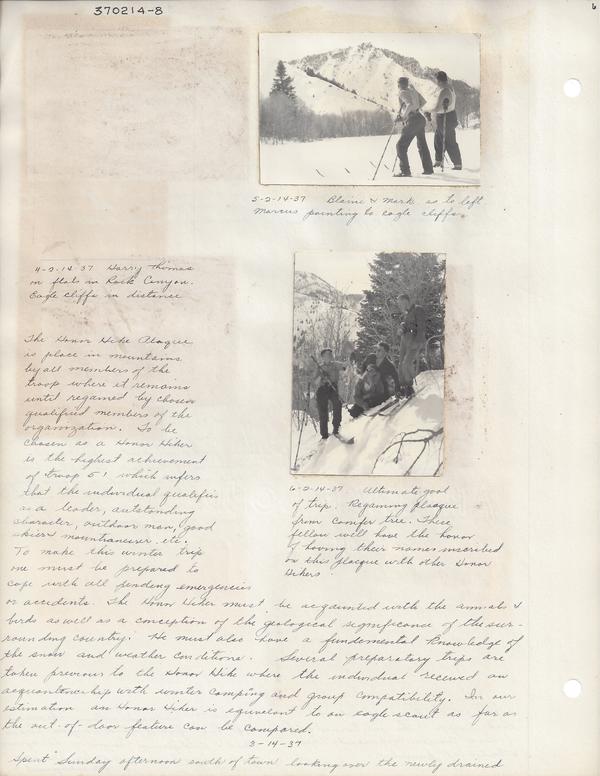 370214-8
6
5-2-14-37 Blaine & Mark as to left
Marcus pointing to eagle cliffs.
4-2-14-37 Harry Thomas
on flats in Rock Canyon.
Eagle cliffs in distance
The Honor Hike Plaque
is place in mountains
by all members of the
troop where it remains
until regained by chosen
qualified members of the
organization. To be
chosen as a Honor Hiker
is the highest achievement
of troop 51 which infers
that the individual qualifies
as a leader, outstanding
character, outdoor man, good
skier & mountianeuer, etc.
To make this winter trip
one must be prepared to
cope with all pending emergencies
or accidents. The Honor Hiker must be acquanted with the animals &
birds as well as a conception of the geological significance of the sur-
rounding country. He must also have a fundemental knowledge of
the snow and weather conditions. Several preparatory trips are
taken previous to the Honor Hike where the individual received an
acquantowship with winter camping and group compatibility. In our
estimation an Honor Hiker is equivelant to an eagle scout as far as
the out-of-door feature can be compared.
6-2-14-37 Ultimate goal
of trip. Regaining plaque
from conifer tree. These
fellow will have the honor
of having their names inscribed
on this plaque with other Honor
Hikers
3-14-37
Spent Sunday afternoon south of town looking over the newly drained